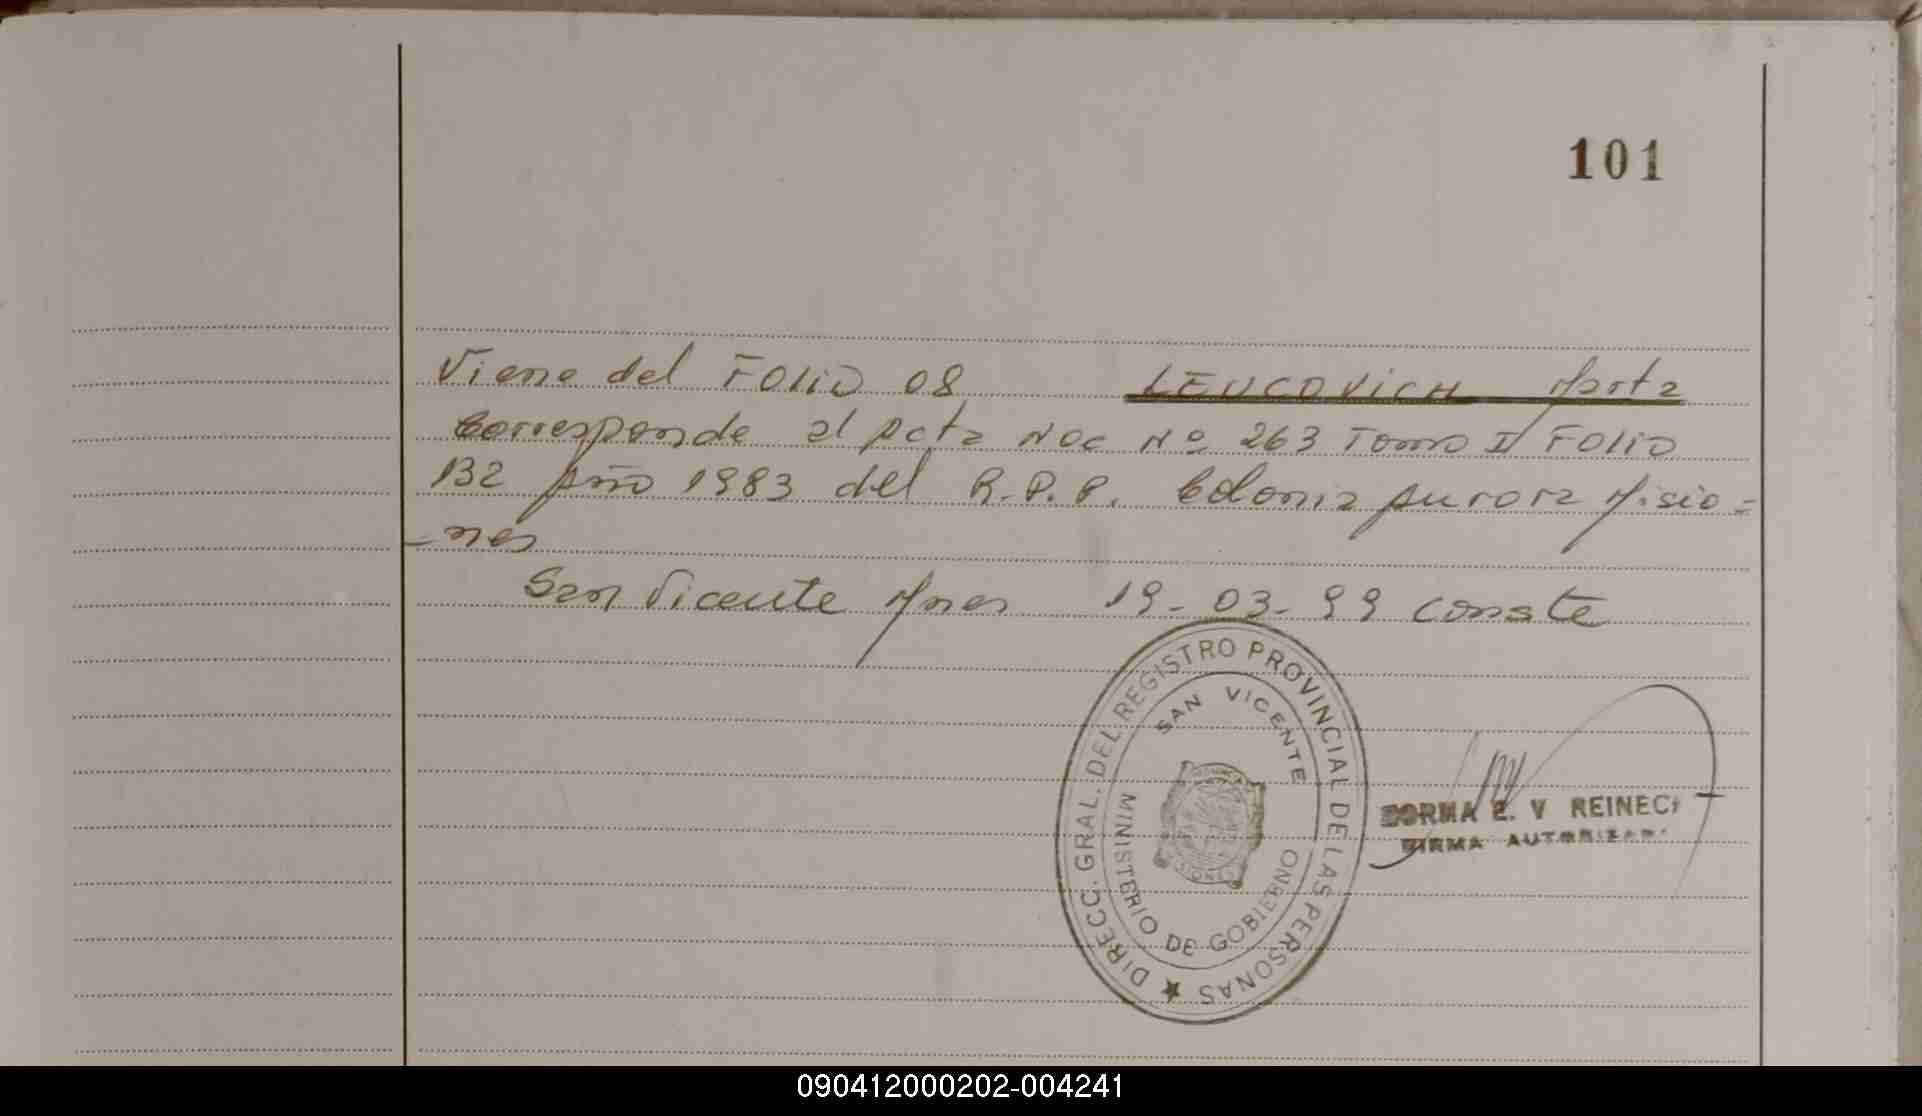 101
Viene del FOLIO 08 LEUCOVICH Marta
Corresponde al Acta Nac Nº 263 Tomo II FOLIO
132 Año 1983 del R.P.P. Colonia Aurora Misio=
-nes
San Vicente Mnes 19-03-99 Conste
DIRECC. GRAL. DEL REGISTRO PROVINCIAL DE LAS PERSONAS
SAN VICENTE
MINISTERIO DE GOBIERNO
E. V REINECK
FIRMA AUTORIZADA
090412000202-004241